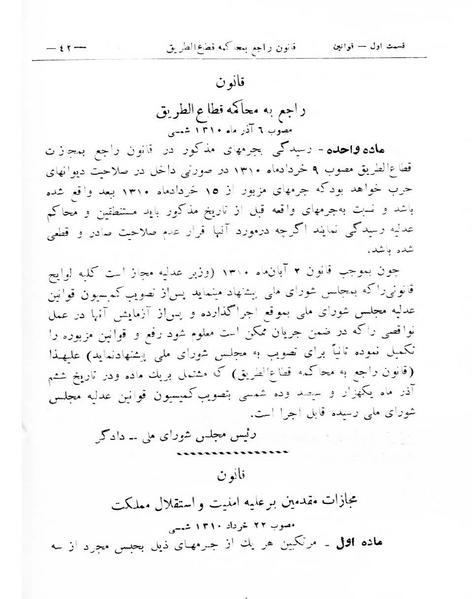 قسمت اول — قوانین
قانون راجع بمحاکمه قطاع‌الطریق
— ۴۲ —
قانون
راجع به محاکمه قطاع‌الطریق
مصوب ۶ آذر ماه ۱۳۱۰ شمسی
ماده واحده - رسیدگی بجرمهای مذکور در قانون راجع بمجازات
قطاع‌الطریق مصوب ۹ خردادماه ۱۳۱۰ در صورتی داخل در صلاحیت دیوانهای
حرب خواهد بودکه جرمهای مزبور از ۱۵ خردادماه ۱۳۱۰ ببعد واقع شده
باشد و نسبت به‌جرمهای واقعه قبل از تاریخ مذکور باید مستنطقین و محاکم
عدلیه رسیدگی نمایند اگرچه درمورد آنها قرار عدم صلاحیت صادر و قطعی
شده باشد.
چون بموجب قانون ۲ آبان‌ماه ۱۳۱۰ (وزیر عدلیه مجاز است کلیه لوایح
قانونی‌راکه بمجلس شورای ملی پیشنهاد مینماید پس‌از تصویب‌کمیسیون قوانین
عدلیه مجلس شورای ملی بموقع اجراگذارده و پس‌از آزمایش آنها در عمل
نواقصی راکه در ضمن جریان ممکن است معلوم شود رفع و قوانین مزبوره را
تکمیل نموده ثانیاً برای تصویب به مجلس شورای ملی پیشنهادنماید) علیهذا
(قانون راجع به محاکمه قطاع‌الطریق) که مشتمل بریك ماده ودر تاریخ ششم
آذر ماه یکهزار و سیصد وده شمسی بتصویب‌کمیسیون قوانین عدلیه مجلس
شورای ملی رسیده قابل اجرا است.
رئیس مجلس شورای ملی -- دادگر
قانون
مجازات مقدمین برعلیه امنیت و استقلال مملکت
مصوب ۲۲ خرداد ۱۳۱۰ شمسی
ماده اول - مرتکبین هر یك از جرمهای ذیل بحبس مجرد از سه